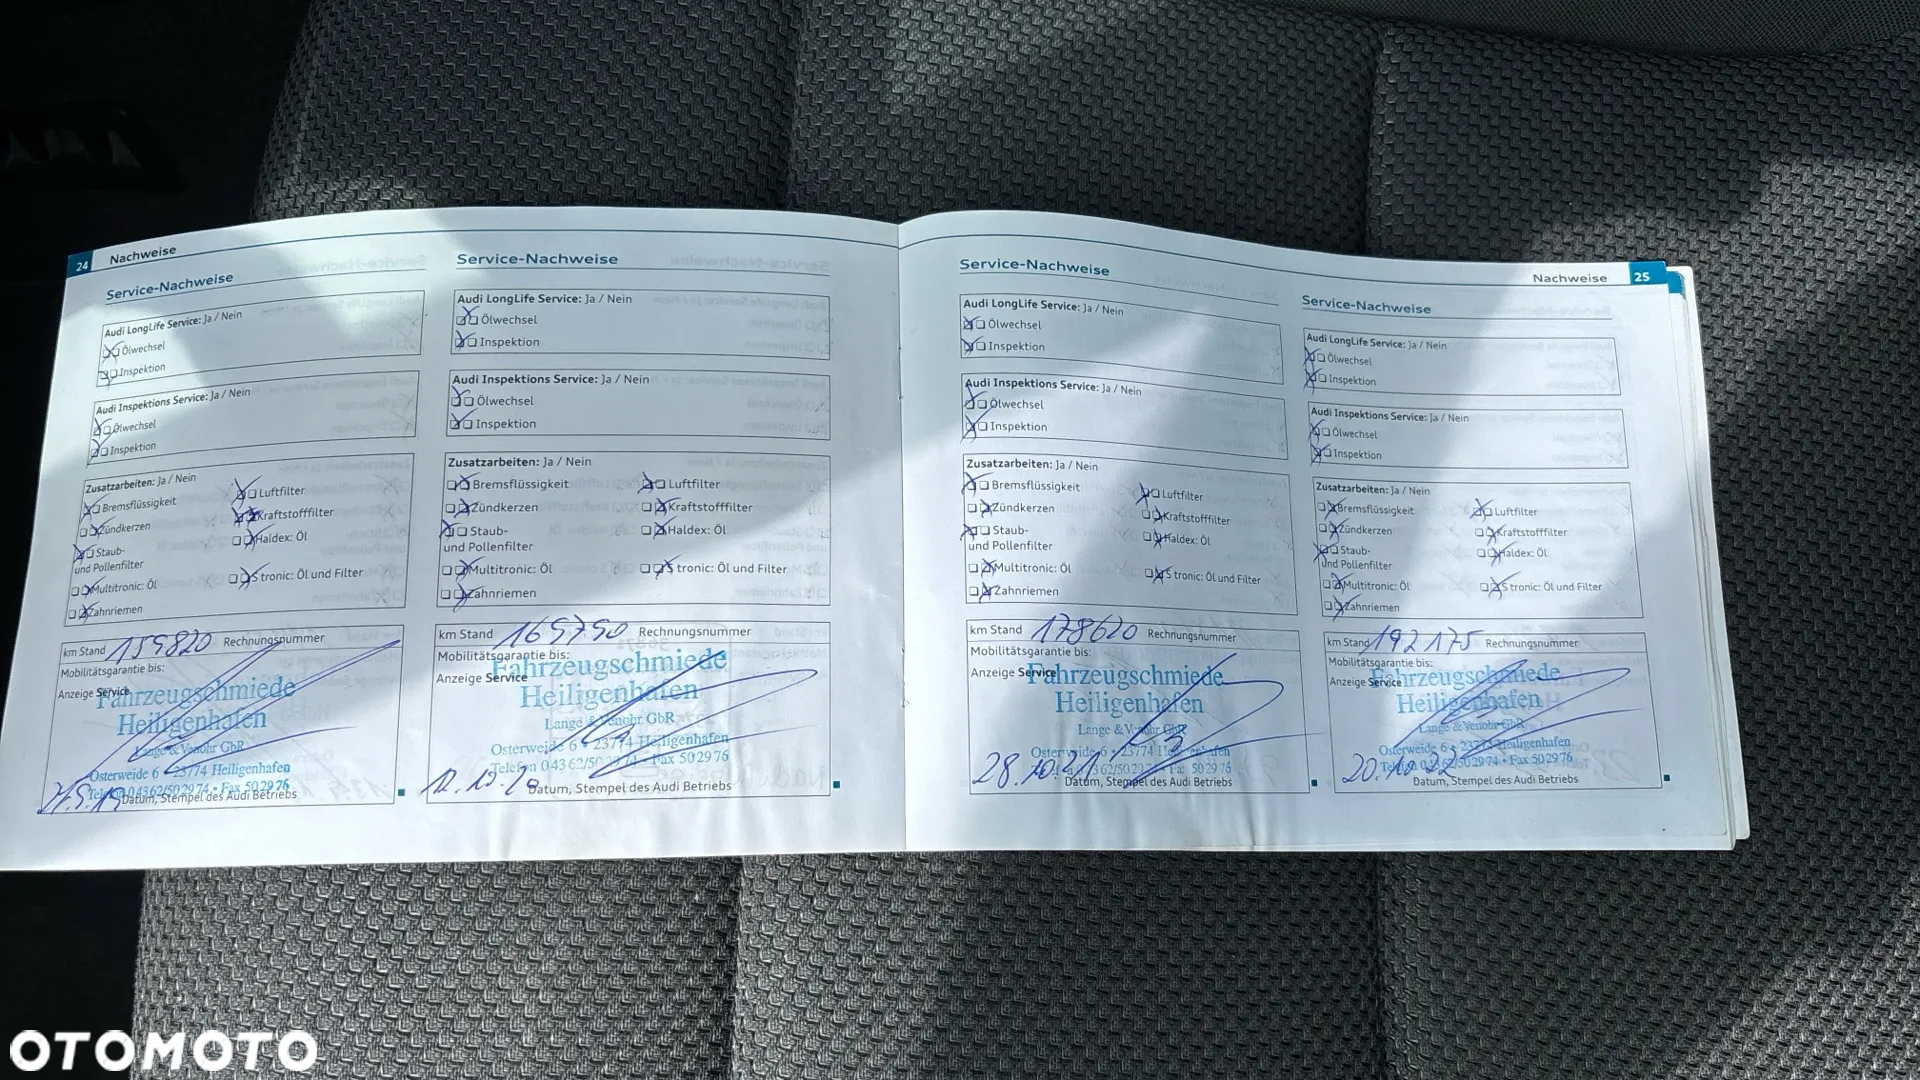 24 Nachweise
Service-Nachweise
Audi LongLife Service: Ja / Nein
Ölwechsel
Inspektion
Audi Inspektions Service: Ja / Nein
Ölwechsel
Inspektion
Zusatzarbeiten: Ja / Nein
Bremsflüssigkeit
Luftfilter
Zündkerzen
Kraftstofffilter
Staub-
und Pollenfilter
Haldex: Öl
Multitronic: Öl
S tronic: Öl und Filter
Zahnriemen
km Stand 159820 Rechnungsnummer
Mobilitätsgarantie bis:
Anzeige Service
Fahrzeugschmiede
Heiligenhafen
Lange & Venohr GbR
Osterweide 6 • 23774 Heiligenhafen
Telefon 04362/502974 • Fax 502976
Datum, Stempel des Audi Betriebs
Service-Nachweise
Audi LongLife Service: Ja / Nein
Ölwechsel
Inspektion
Audi Inspektions Service: Ja / Nein
Ölwechsel
Inspektion
Zusatzarbeiten: Ja / Nein
Bremsflüssigkeit
Luftfilter
Zündkerzen
Kraftstofffilter
Staub-
und Pollenfilter
Haldex: Öl
Multitronic: Öl
S tronic: Öl und Filter
Zahnriemen
km Stand 169790 Rechnungsnummer
Mobilitätsgarantie bis:
Anzeige Service
Fahrzeugschmiede
Heiligenhafen
Lange & Venohr GbR
Osterweide 6 • 23774 Heiligenhafen
Telefon 04362/502974 • Fax 502976
Datum, Stempel des Audi Betriebs
Nachweise 25
Service-Nachweise
Audi LongLife Service: Ja / Nein
Ölwechsel
Inspektion
Audi Inspektions Service: Ja / Nein
Ölwechsel
Inspektion
Zusatzarbeiten: Ja / Nein
Bremsflüssigkeit
Luftfilter
Zündkerzen
Kraftstofffilter
Staub-
und Pollenfilter
Haldex: Öl
Multitronic: Öl
S tronic: Öl und Filter
Zahnriemen
km Stand 178620 Rechnungsnummer
Mobilitätsgarantie bis:
Anzeige Service
Fahrzeugschmiede
Heiligenhafen
Lange & Venohr GbR
Osterweide 6 • 23774 Heiligenhafen
28.10.21
Telefon 04362/502974 • Fax 502976
Datum, Stempel des Audi Betriebs
Service-Nachweise
Audi LongLife Service: Ja / Nein
Ölwechsel
Inspektion
Audi Inspektions Service: Ja / Nein
Ölwechsel
Inspektion
Zusatzarbeiten: Ja / Nein
Bremsflüssigkeit
Luftfilter
Zündkerzen
Kraftstofffilter
Staub-
und Pollenfilter
Haldex: Öl
Multitronic: Öl
S tronic: Öl und Filter
Zahnriemen
km Stand 192175 Rechnungsnummer
Mobilitätsgarantie bis:
Anzeige Service
Fahrzeugschmiede
Heiligenhafen
Lange & Venohr GbR
Osterweide 6 • 23774 Heiligenhafen
Telefon 04362/502974 • Fax 502976
Datum, Stempel des Audi Betriebs
OTOMOTO